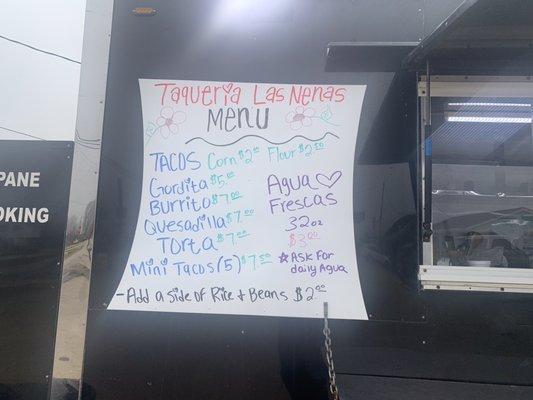 PANE
OKING
Taqueria Las Nenas
Menu
TACOS Corn $2.00 Flour $2.50
Gordita $5.00
Burrito $7.00
Quesadilla $7.00
Torta $7.00
Mini Tacos (5) $7.50
Agua
Frescas
32oz
$3.00
☆Ask For
daily Agua
-Add a side of Rice & Beans $2.00